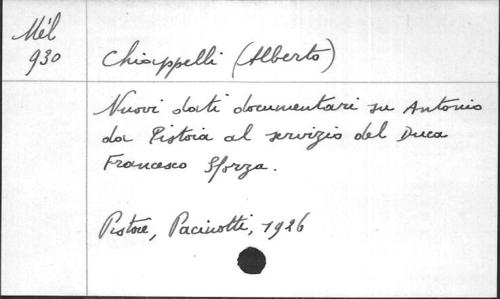 Mél
930
Chiappelli (Alberto)
Nuovi dati documentari su Antonio
da Pistoia al servizio del Duca
Francesco Sforza.
Pistoie, Pacinotti, 1926